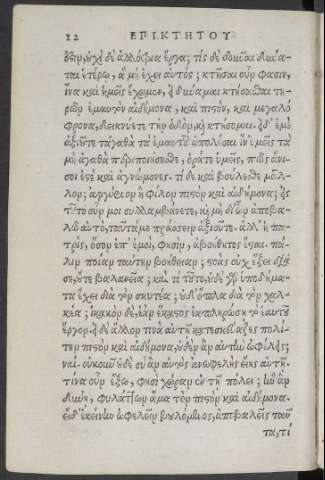 12 ΕΠΙΚΤΗΤΟΥ
δεῖν, οὐχὶ δὲ ἀλλότρια ἔργα; τίς δὲ δοῦναι δύνα-
ται ἑτέρῳ, ἃ μὴ ἔχει αὐτός; κτῆσαι οὖν φασιν,
ἵνα καὶ ἡμεῖς ἔχωμεν. εἰ δύναμαι κτήσασθαι τη-
ρῶν ἐμαυτὸν αἰδήμονα, καὶ πιστὸν, καὶ μεγαλό
φρονα, δεικνύετε τὴν ὁδὸν, κὴ κτήσομαι. εἰ δ' ἐμὲ
ἀξιοῦτε τἀγαθὰ τὰ ἐμαυτοῦ ἀπολέσαι ἵν' ὑμεῖς τὰ
μὴ ἀγαθὰ περιποιήσησθε, ὁρᾶτε ὑμεῖς, πῶς ἄνι-
σοί ἐστε καὶ ἀγνώμονες. τί δὲ καὶ βούλεσθε μᾶλ-
λον; ἀργύριον ἢ φίλον πιστὸν καὶ αἰδήμονα; εἰς
τοῦτο οὖν μοι συλλαμβάνετε, κὴ μὴ δι' ὧν ἀποβα-
λῶ αὐτὸ, ταῦτά με πράσσειν ἀξιοῦτε. ἀλλ' ἡ πα-
τρὶς, ὅσον ἐπ' ἐμοὶ, φησὶν, ἀβοήθητος ἔσται. πά-
λιν ποίαν ταύτην βοήθειαν; στοὰς οὐχ ἕξει διὰ
σὲ, οὔτε βαλανεῖα; καὶ τί τοῦτο, οὐδὲ γὰρ ὑποδήμα-
τα ἔχει διὰ τὸν σκυτέα; οὐδ' ὅπλα διὰ τὸν χαλ-
κέα; ἱκανὸν δὲ, ἐὰν ἕκαστος ἐκπληρώσῃ τὸ ἑαυτοῦ
ἔργον. εἰ δὲ ἄλλον τινὰ αὐτῇ κατεσκεύαζες πολί-
την πιστὸν καὶ αἰδήμονα, οὐδὲν ἂν αὐτὴν ὠφέλεις;
ναί. οὐκοῦν οὐδὲ σὺ ἂν αὐτὸς ἀνωφελὴς εἴης αὐτῇ.
τίνα οὖν ἕξω, φησὶ χώραν ἐν τῇ πόλει; ἣν ἂν
δύνῃ, φυλάττων ἅμα τὸν πιστὸν καὶ αἰδήμονα.
εἰ δ' ἐκείνην ὠφελεῖν βουλόμενος, ἀποβαλεῖς ταῦ
τα, τί